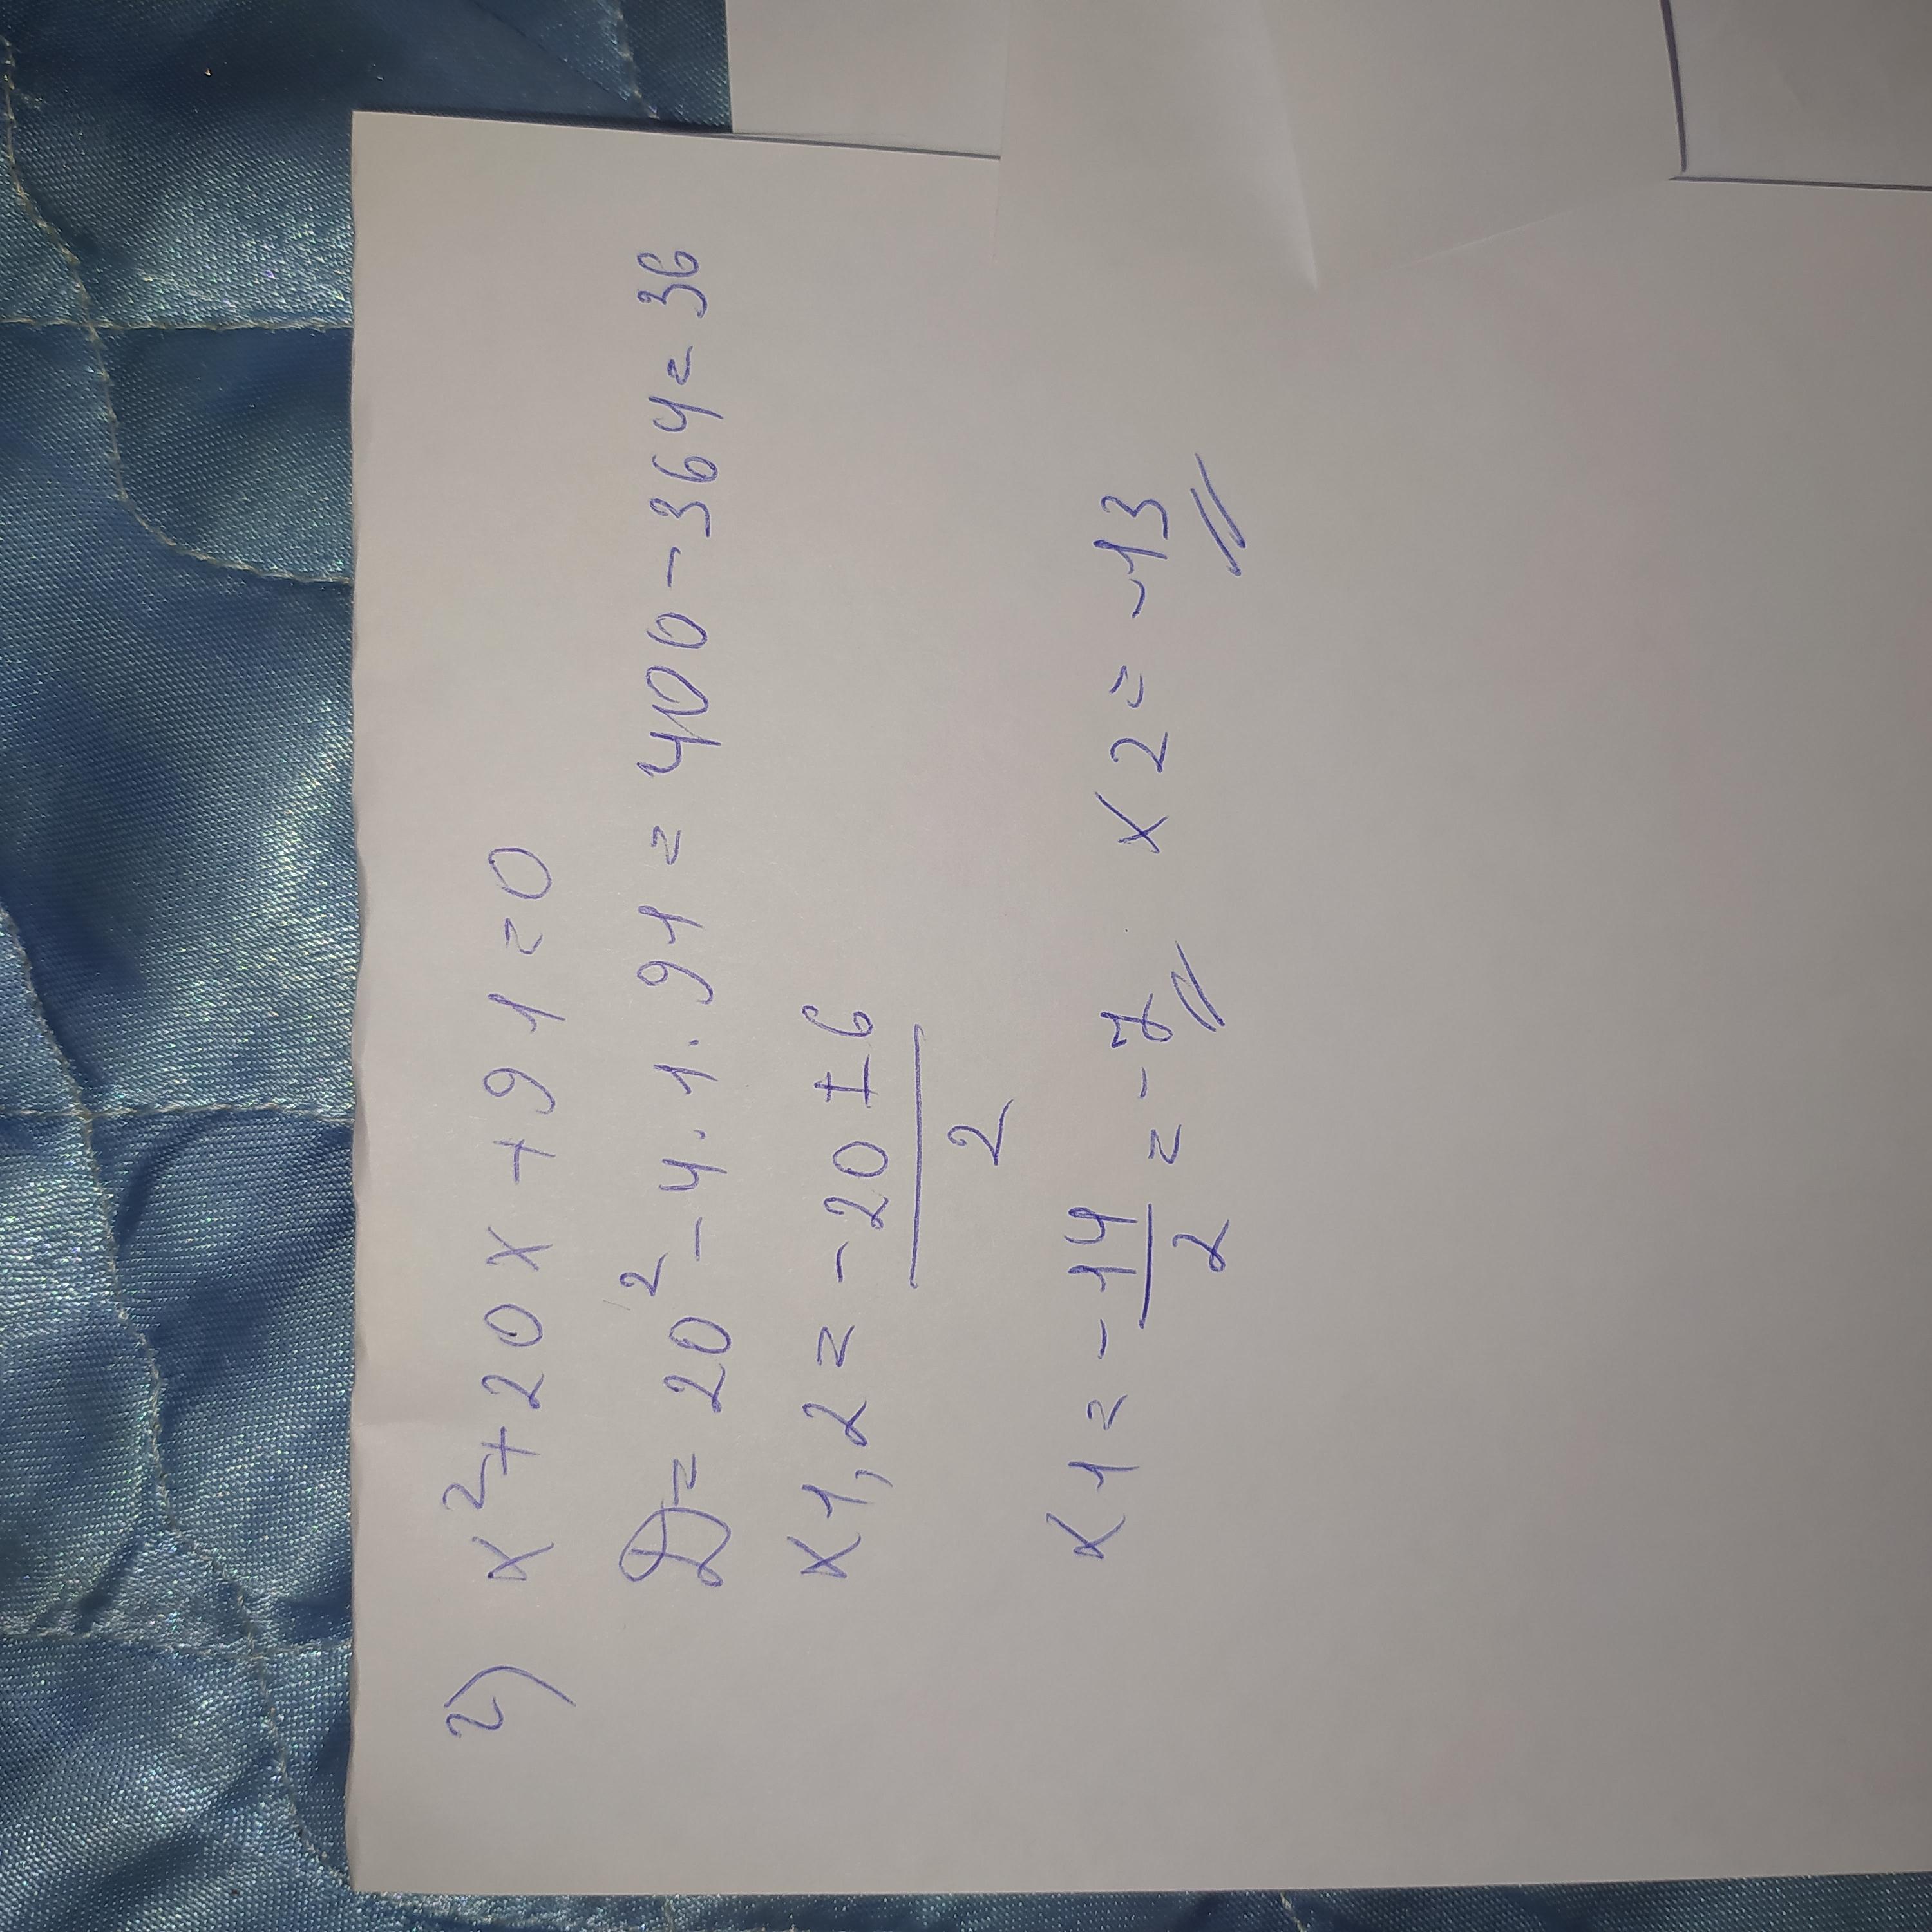 г) x²+20x+91=0
D=20²-4·1·91=400-364=36
x1,2=-20±6
2
x1=-14/2=-7 x2=-13